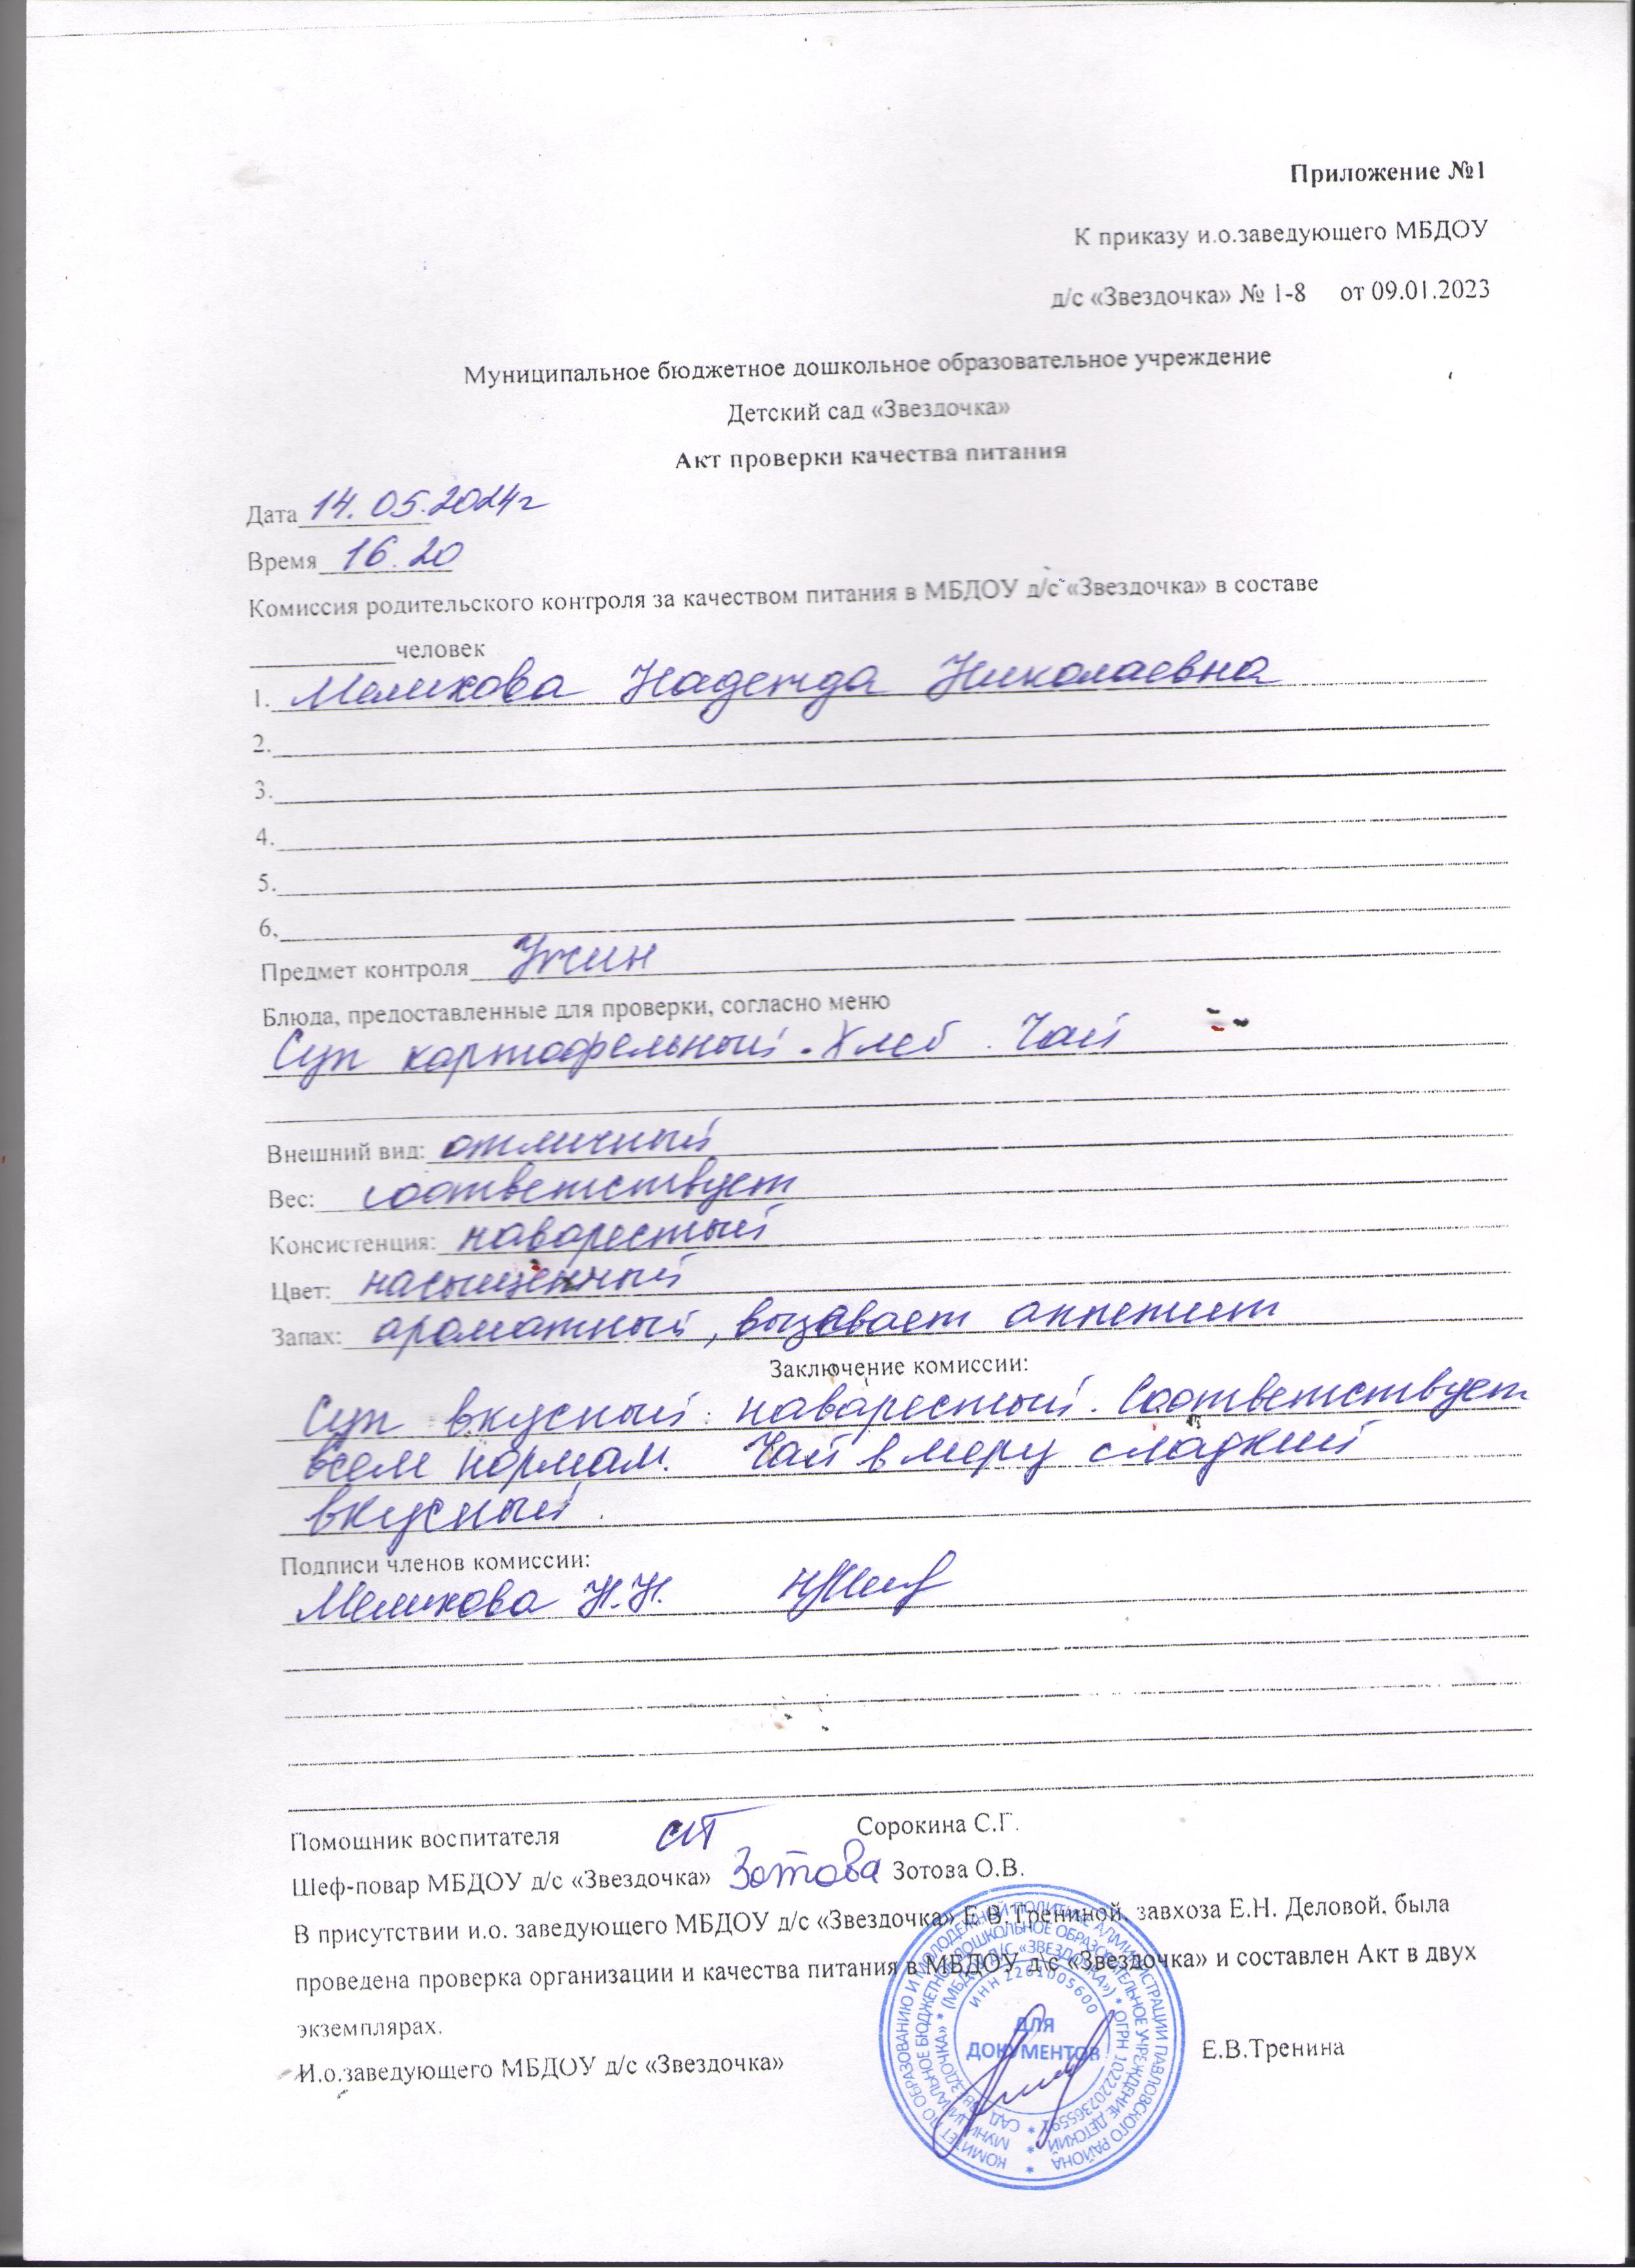 Приложение №1
К приказу и.о.заведующего МБДОУ
д/с «Звездочка» № 1-8 от 09.01.2023
Муниципальное бюджетное дошкольное образовательное учреждение
Детский сад «Звездочка»
Акт проверки качества питания
Дата 14.05.2024г
Время 16.20
Комиссия родительского контроля за качеством питания в МБДОУ д/с «Звездочка» в составе
человек
1. Меликова Надежда Николаевна
2.
3.
4.
5.
6.
Предмет контроля Ужин
Блюда, предоставленные для проверки, согласно меню
Суп картофельный. Хлеб. Чай
Внешний вид: отличный
Вес: соответствует
Консистенция: наварестый
Цвет: насыщенный
Запах: ароматный, вызавает аппетит
Заключение комиссии:
Суп вкусный. наварестый. Соответствует
всем нормам. Чай в меру сладкий
вкусный.
Подписи членов комиссии:
Меликова Н.Н.
Помощник воспитателя Сорокина С.Г.
Шеф-повар МБДОУ д/с «Звездочка» Зотова Зотова О.В.
В присутствии и.о. заведующего МБДОУ д/с «Звездочка» Е.В.Трениной, завхоза Е.Н. Деловой, была
проведена проверка организации и качества питания в МБДОУ д\с «Звездочка» и составлен Акт в двух
экземплярах.
И.о.заведующего МБДОУ д/с «Звездочка» Е.В.Тренина
КОМИТЕТ ПО ОБРАЗОВАНИЮ И МОЛОДЕЖНОЙ ПОЛИТИКЕ АДМИНИСТРАЦИИ ПАВЛОВСКОГО РАЙОНА
МУНИЦИПАЛЬНОЕ БЮДЖЕТНОЕ ДОШКОЛЬНОЕ ОБРАЗОВАТЕЛЬНОЕ УЧРЕЖДЕНИЕ ДЕТСКИЙ
САД «ЗВЕЗДОЧКА» * (МБДОУ Д/С «ЗВЕЗДОЧКА») * ОГРН 1022202365591
ИНН 2261005600
ДЛЯ
ДОКУМЕНТОВ